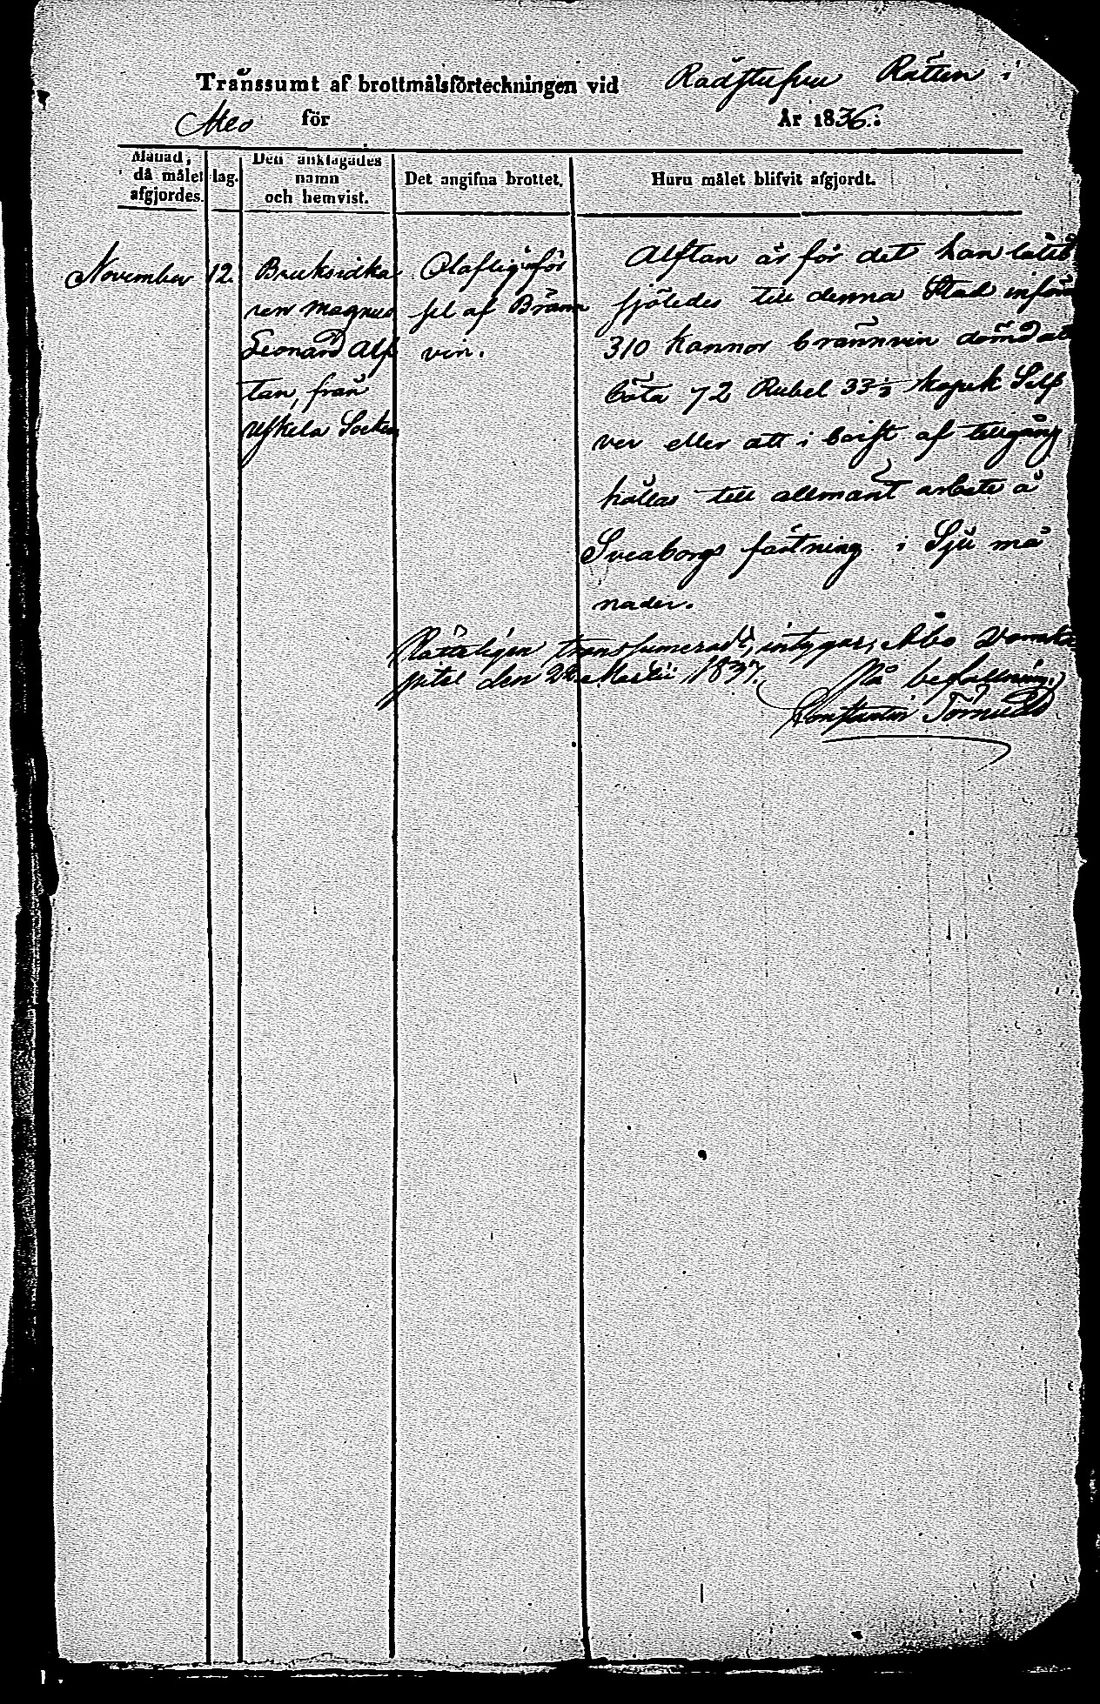 Transsumt af brottmålsförteckningen vid Rådstufvu Rätten i
Åbo för År 1836.
Månad, då målet afgjordes.
Dag.
Den anklagades namn och hemvist.
Det angifna brottet.
Huru målet blifvit afgjordt.
November 12.
Bruksidka
ren Magnus
Leonard Alf
tan, från
Uskela Socken
Olaflig inför
sel af Bränn
vin.
Alftan är för det han låtit
sjöledes till denna Stad införa
310 kannor brännvin dömd att
böta 72 Rubel 33⅓ kopek Silf
ver eller att i brist af tillgång
hållas till allmänt arbete å
Sveaborgs fästning i Sju må
nader.
Rätteligen transsumeradt, intygar, Åbo
den 22 Martii 1837. På befallning:
Constantin